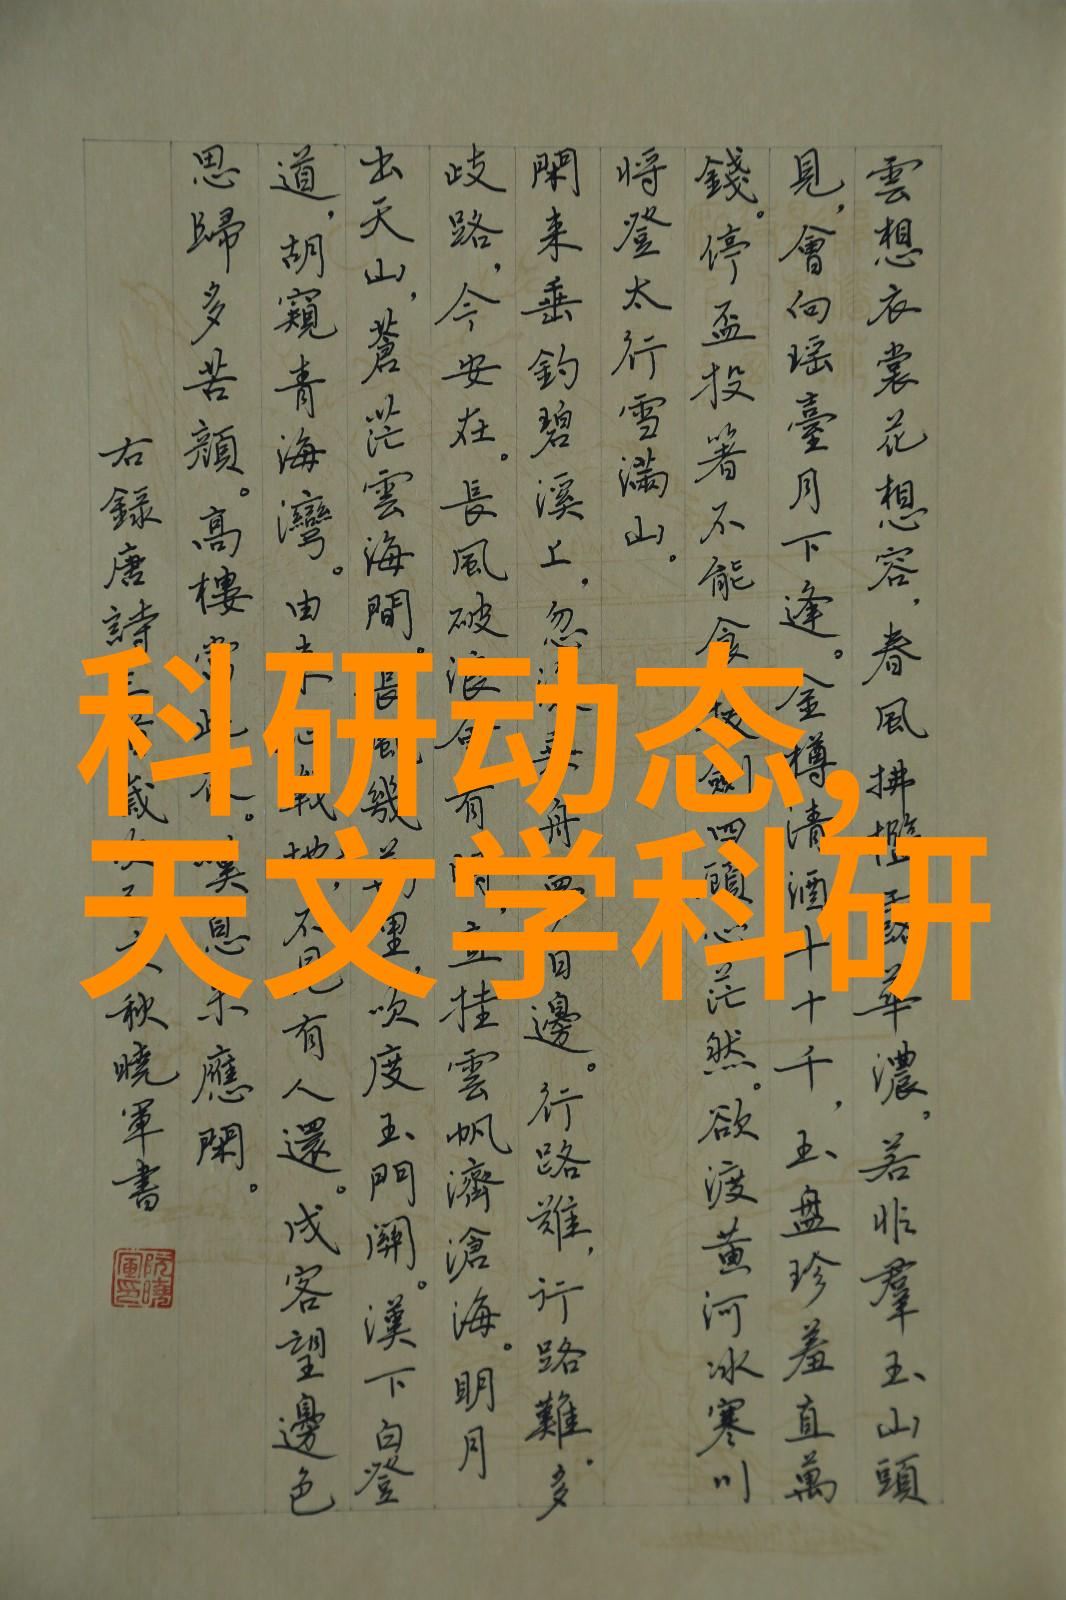 科研动态,
天文学科研
雲想衣裳花想容，春風拂檻露華濃。若非羣玉山頭
見，會向瑶臺月下逢。金樽清酒十千，玉盤珍羞直萬
錢。停盃投箸不能食劍四顧心茫然。欲渡黄河冰寒川
将登太行雪滿山。
閑来垂釣碧溪上，忽乘舟日邊。行路難，行路難。多
歧路，今安在。長風破浪會有立挂雲帆濟滄海。明月
出天山，蒼茫雲海間。長風幾萬里，吹度玉門關。漢下白登
道，胡窺青海灣。由来戰地，不見有人還。戍客望邊色
思歸多苦顔。高樓當此夜。嘆息未應閑。
右錄唐詩歲次秋曉軍書
阮曉軍印